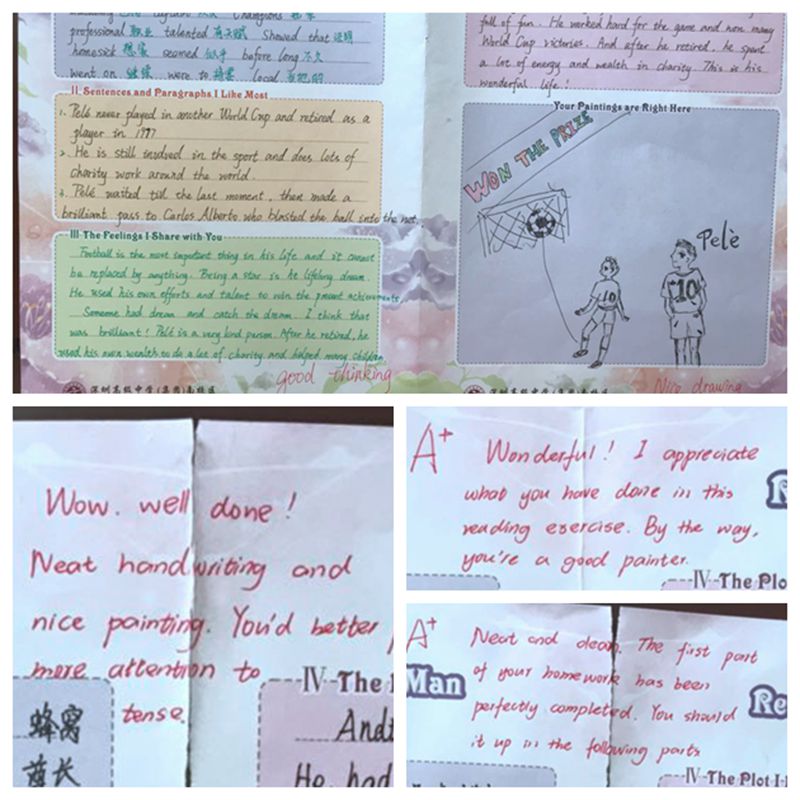 Champions
professional 职业 talented 有天赋 Showed that 证明
homesick 想家 seemed 似乎 before long 不久
went on 继续 were to local 当地的
II Sentences and Paragraphs I Like Most
1. Pelé never played in another World Cup and retired as a
player in 1977
2. He is still involved in the sport and does lots of
charity work around the world.
3. Pelé waited till the last moment, then made a
brilliant pass to Carlos Alberto who blasted the ball into the net.
III The Feelings I Share with You
Football is the most important thing in his life and it cannot
be replaced by anything. Being a star is he lifelong dream.
He used his own efforts and talent to win the present achievements.
Someone had dream and catch the dream. I think that
was brilliant! Pelé is a very kind person. After he retired, he
used his own wealth to do a lot of charity and helped many children
good thinking
深圳高级中学(集团)南校区
full of fun. He worked hard for the game and won many
World Cup victories. And after he retired, he spent
a lot of energy and wealth in charity. This is his
wonderful life!
Your Paintings are Right Here
WON THE PRIZE
Pelè
10
10
深圳高级中学(集团)南校区
Nice drawing
Wow. well done!
Neat handwriting and
nice painting. You'd better
more attention to
tense.
IV The
蜂窝
酋长
And
He had
A+ Wonderful! I appreciate
what you have done in this
reading exercise. By the way,
you're a good painter.
IV The Plo
A+ Neat and clean. The first part
of your homework has been
perfectly completed. You should
it up in the following parts
Man
Re
IV The Plot I